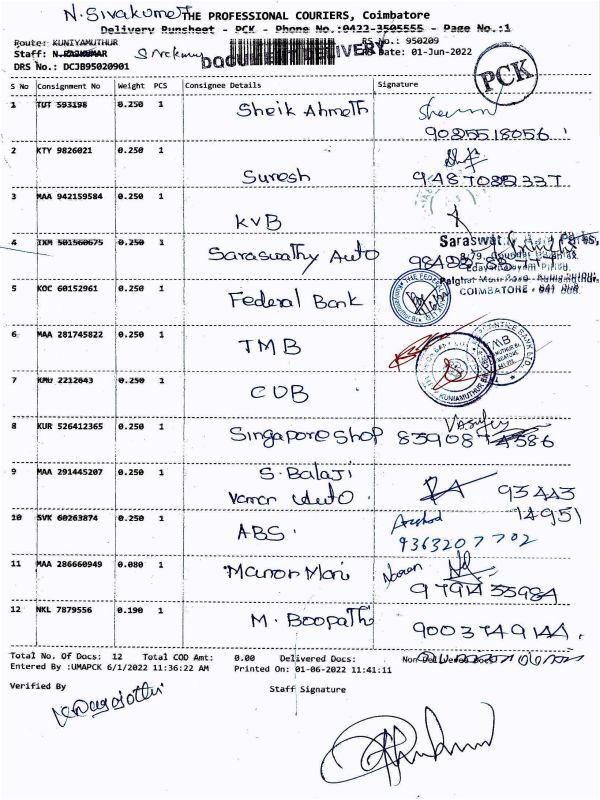 N. Sivakumar
THE PROFESSIONAL COURIERS, Coimbatore
Delivery Runsheet - PCK - Phone No.:0422-3505555 - Page No.:1
Route: KUNIYAMUTHUR
RS No.: 950209
Staff: N.RAJKUMAR
DOCUMENT DELIVERY
Date: 01-Jun-2022
DRS No.: DCJB95020901
PCK
S No Consignment No Weight PCS Consignee Details Signature
1 TUT 593198 0.250 1 Sheik Ahmeth
9025518056
2 KTY 9826021 0.250 1 Suresh
3 MAA 942159584 0.250 1 KVB
4 IXM 501560675 0.250 1 Saraswathy Auto
COIMBATORE - 641 008.
5 KOC 60152961 0.250 1 Federal Bank
6 MAA 281745822 0.250 1 TMB
TMB
7 KMU 2212643 0.250 1 CUB
8 KUR 526412365 0.250 1 Singapore shop
9 MAA 291445207 0.250 1 S. Balaji
Auto
93443
14951
10 SVK 60263874 0.250 1 ABS
Arshad
9363207702
11 MAA 286660949 0.080 1 Manor Mani
9791435984
12 NKL 7879556 0.190 1 M. Boopathi
9003749144
Total No. Of Docs: 12 Total COD Amt: 0.00 Delivered Docs: Non Delivered Docs
Entered By :UMAPCK 6/1/2022 11:36:22 AM Printed On: 01-06-2022 11:41:11
Verified By
Staff Signature